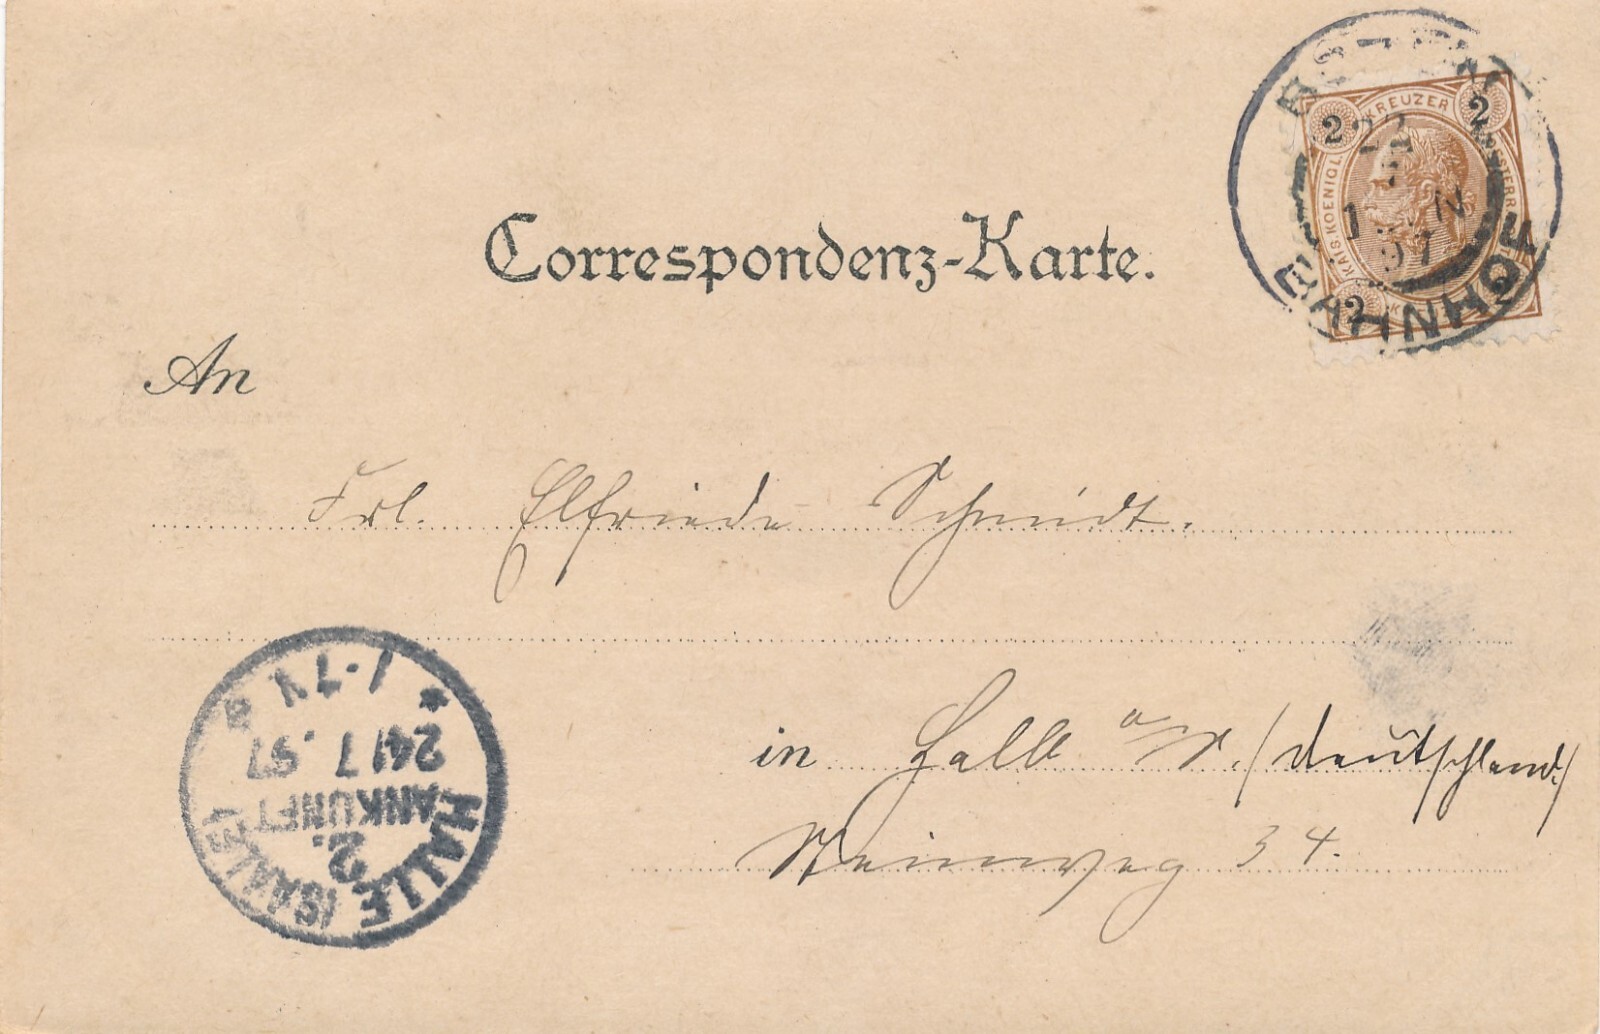 Correspondenz-Karte.
2 KREUZER 2
KAIS. KOENIGL. OESTERR.
2 2
BAHNHOF
An
Frl. Elfriede Schmidt.
in Halle a/S. /Deutschland/
34.
HALLE (SAALE)
2.
ANKUNFT
24/7.97
1-7V